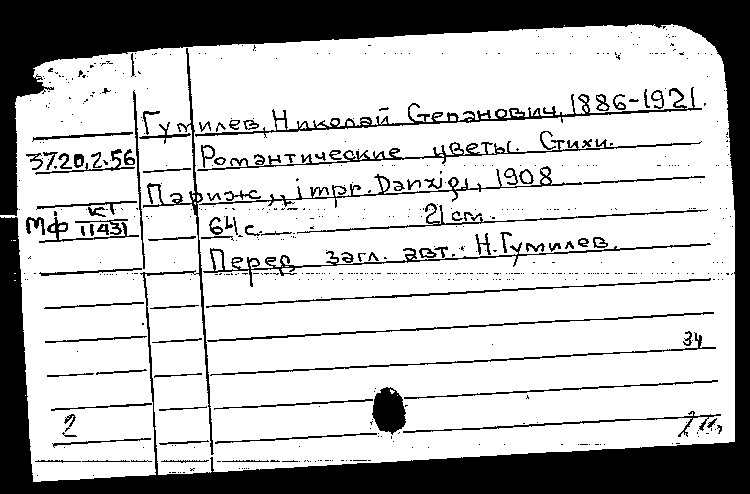 Гумилев, Николай Степанович, 1886-1921.
37.20.2.56 Романтические цветы. Стихи.
Париж, „impr. Danzig“, 1908
МФ К1/11431 64 с. 21 см.
Перед загл. авт.: Н. Гумилев.
34
2